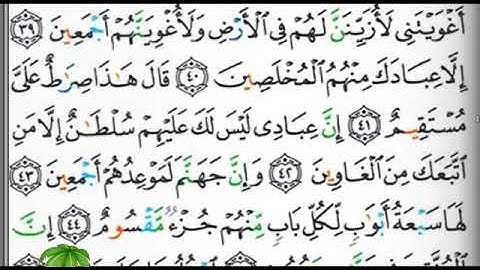 أَغْوَيْتَنِى لَأُزَيِّنَنَّ لَهُمْ فِى الْأَرْضِ وَلَأُغْوِيَنَّهُمْ أَجْمَعِينَ ٣٩
إِلَّا عِبَادَكَ مِنْهُمُ الْمُخْلَصِينَ ٤٠ قَالَ هَٰذَا صِرَٰطٌ عَلَىَّ
مُسْتَقِيمٌ ٤١ إِنَّ عِبَادِى لَيْسَ لَكَ عَلَيْهِمْ سُلْطَٰنٌ إِلَّا مَنِ
اتَّبَعَكَ مِنَ الْغَاوِينَ ٤٢ وَإِنَّ جَهَنَّمَ لَمَوْعِدُهُمْ أَجْمَعِينَ ٤٣
لَهَا سَبْعَةُ أَبْوَٰبٍ لِّكُلِّ بَابٍ مِّنْهُمْ جُزْءٌ مَّقْسُومٌ ٤٤ إِنَّ